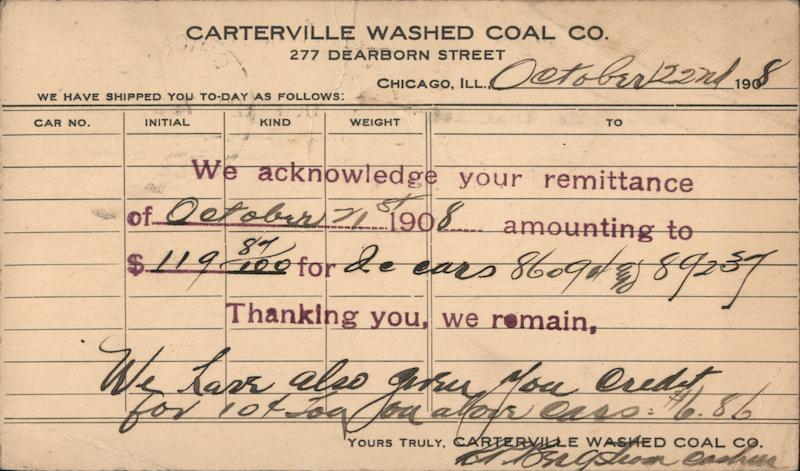 CARTERVILLE WASHED COAL CO.
277 DEARBORN STREET
CHICAGO, ILL., October 22nd 1908
WE HAVE SHIPPED YOU TO-DAY AS FOLLOWS:
CAR NO. INITIAL KIND WEIGHT TO
We acknowledge your remittance
of October 21st 1908 amounting to
$ 119 87/100 for cars 8609 89237
Thanking you, we remain,
We have also given you Credit
for 10¢ above cars: $6.86
YOURS TRULY, CARTERVILLE WASHED COAL CO.
cashier